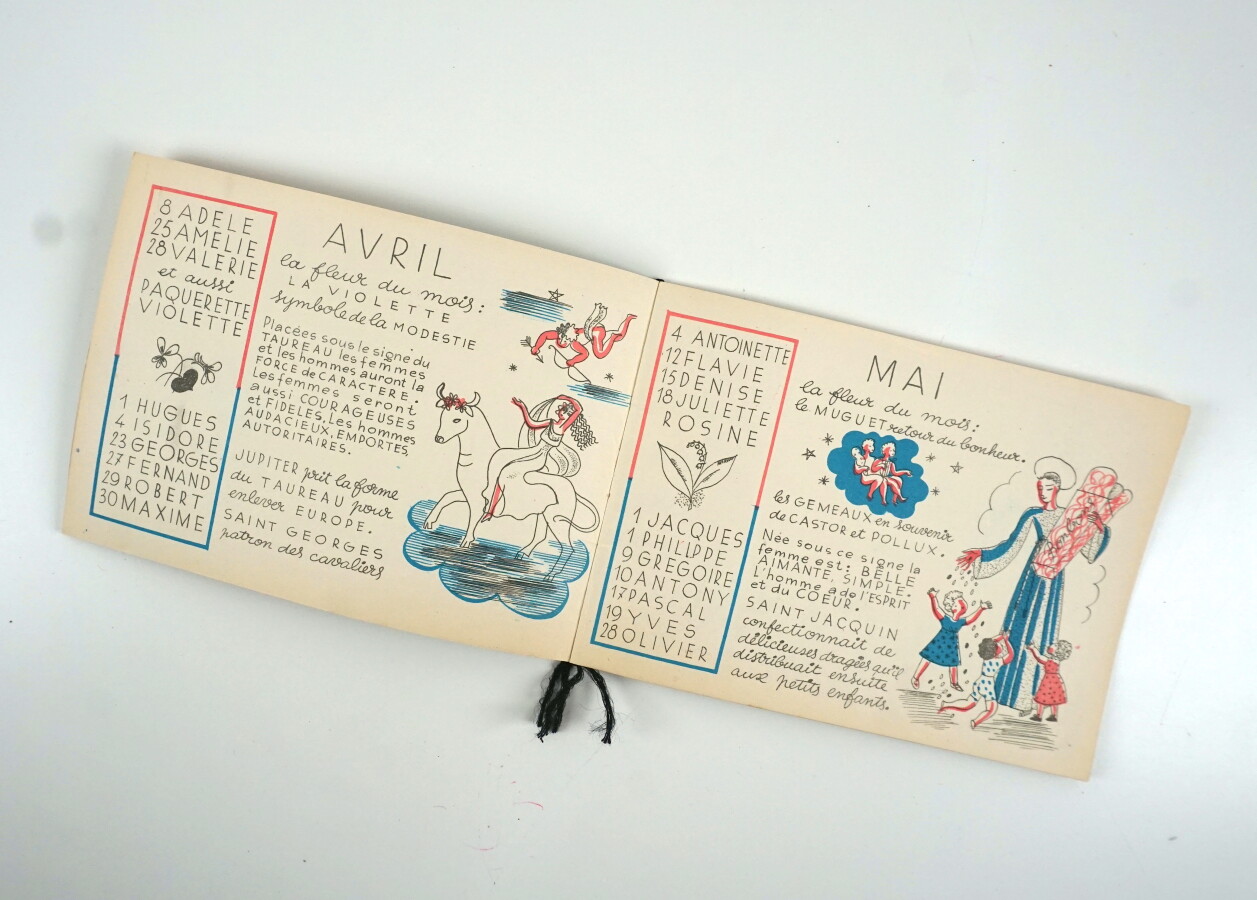 8 ADELE
25 AMELIE
28 VALERIE
et aussi
PAQUERETTE
VIOLETTE
1 HUGUES
4 ISIDORE
23 GEORGES
27 FERNAND
29 ROBERT
30 MAXIME
AVRIL
la fleur du mois:
LA VIOLETTE
symbole de la MODESTIE
Placées sous le signe du
TAUREAU les femmes
et les hommes auront la
FORCE de CARACTERE.
Les femmes seront
aussi COURAGEUSES
et FIDELES. Les hommes
AUDACIEUX, EMPORTES,
AUTORITAIRES.
JUPITER prit la forme
du TAUREAU pour
enlever EUROPE.
SAINT GEORGES
patron des cavaliers
4 ANTOINETTE
12 FLAVIE
15 DENISE
18 JULIETTE
ROSINE
1 JACQUES
1 PHILIPPE
9 GREGOIRE
10 ANTONY
17 PASCAL
19 YVES
28 OLIVIER
MAI
la fleur du mois:
le MUGUET retour du bonheur.
les GEMEAUX en souvenir
de CASTOR et POLLUX.
Née sous ce signe la
femme est: BELLE
AIMANTE, SIMPLE.
L'homme a de l'ESPRIT
et du COEUR.
SAINT JACQUIN
confectionnait de
délicieuses dragées qu'il
distribuait ensuite
aux petits enfants.